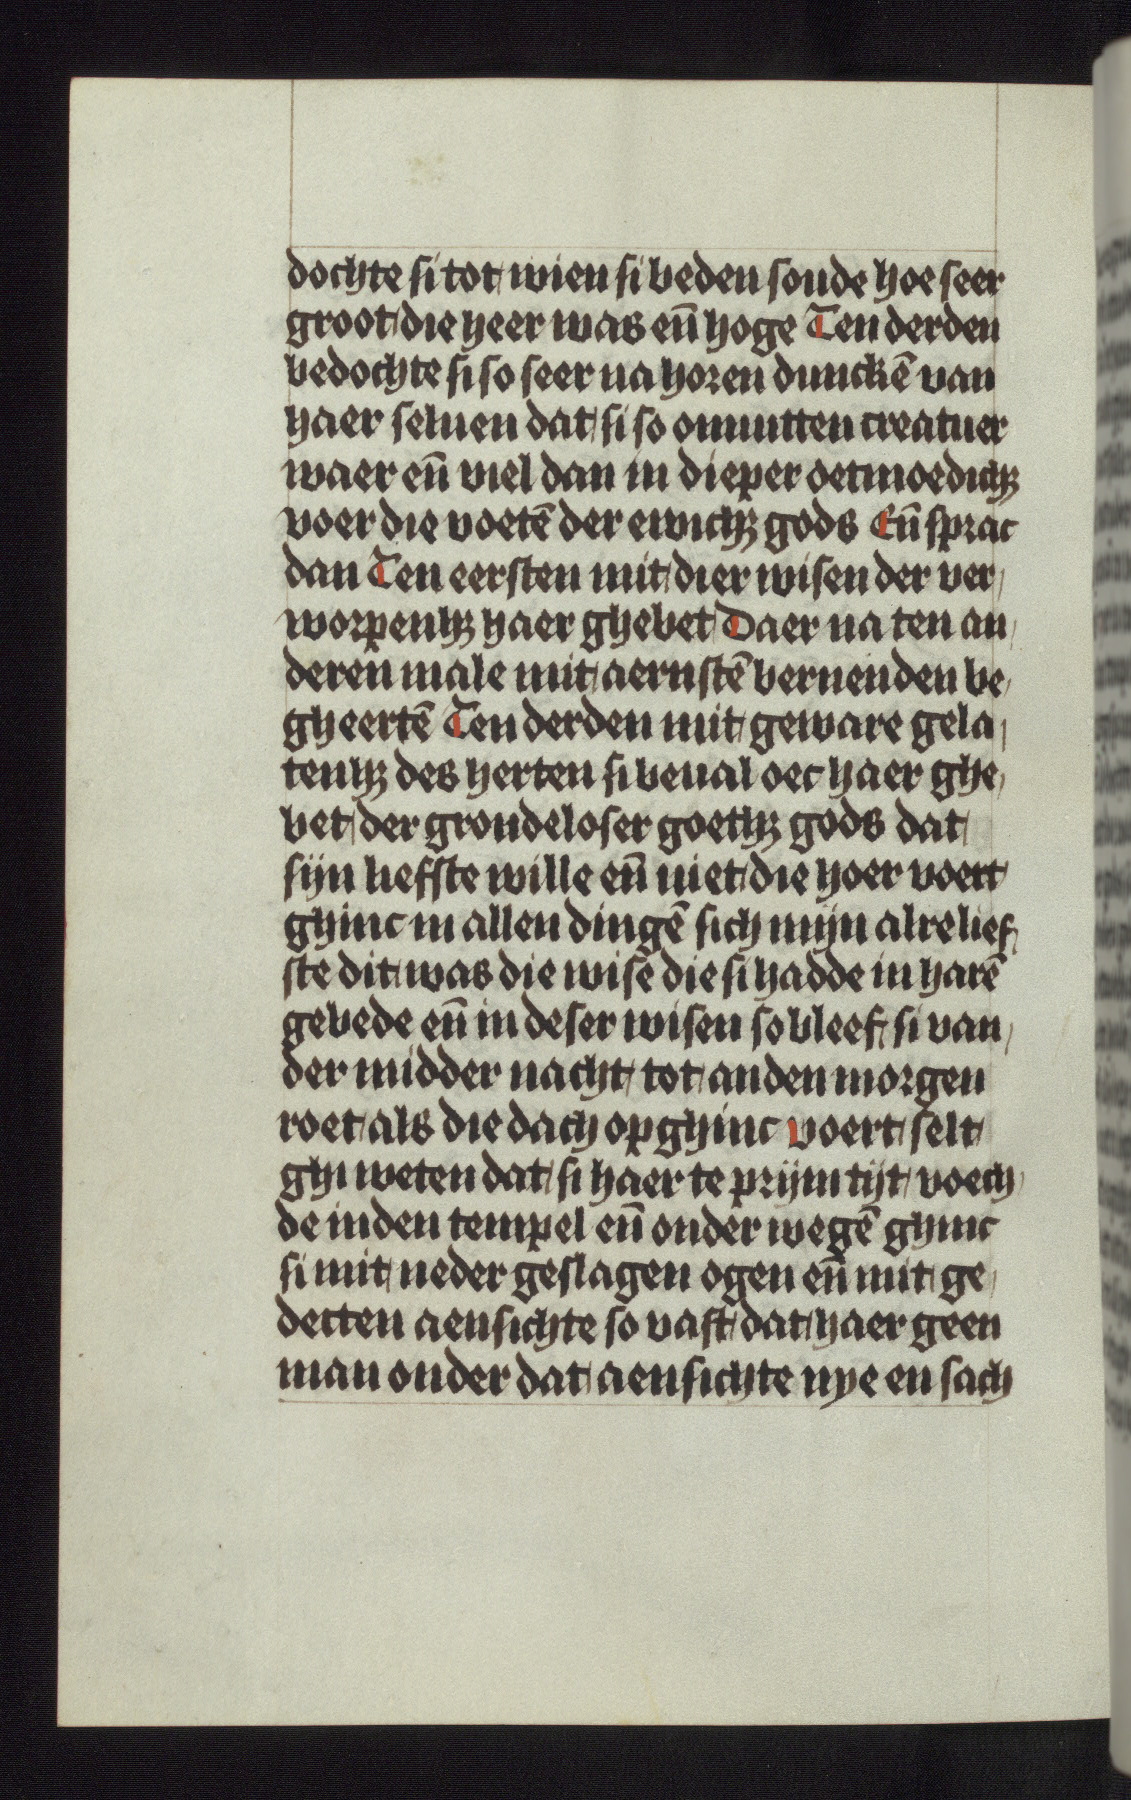 dochte si tot wien si beden soude hoe seer
groot die heer was eñ hoge Ten derden
bedochte si so seer na horen dunckē van
haer seluen dat si so onnutten creatuer
waer eñ viel dan in dieper oetmoedichꝫ
voer die voetē der ewichꝫ gods Eñ sprac
dan Ten eersten mit dier wisen der ver
worpenhꝫ haer ghebet Daer na ten an
deren male mit aernstē bernenden be
gheertē Ten derden mit geware gela
tenhꝫ des herten si beual oec haer ghe
bet der grondeloser goethꝫ gods dat
sijn liefste wille eñ niet die hoer voert
ghinc in allen dingē sich mijn alrelief
ste dit was die wise die si hadde in harē
gebede eñ in deser wisen so bleef si van
der midder nacht tot anden morgen
roet als die dach op ghinc voert selt
ghi weten dat si haer te prijm tijt voech
de inden tempel eñ onder wegē ghinc
si mit neder geslagen ogen eñ mit ge
decten aensichte so vast dat haer geen
man onder dat aensichte nye en sach